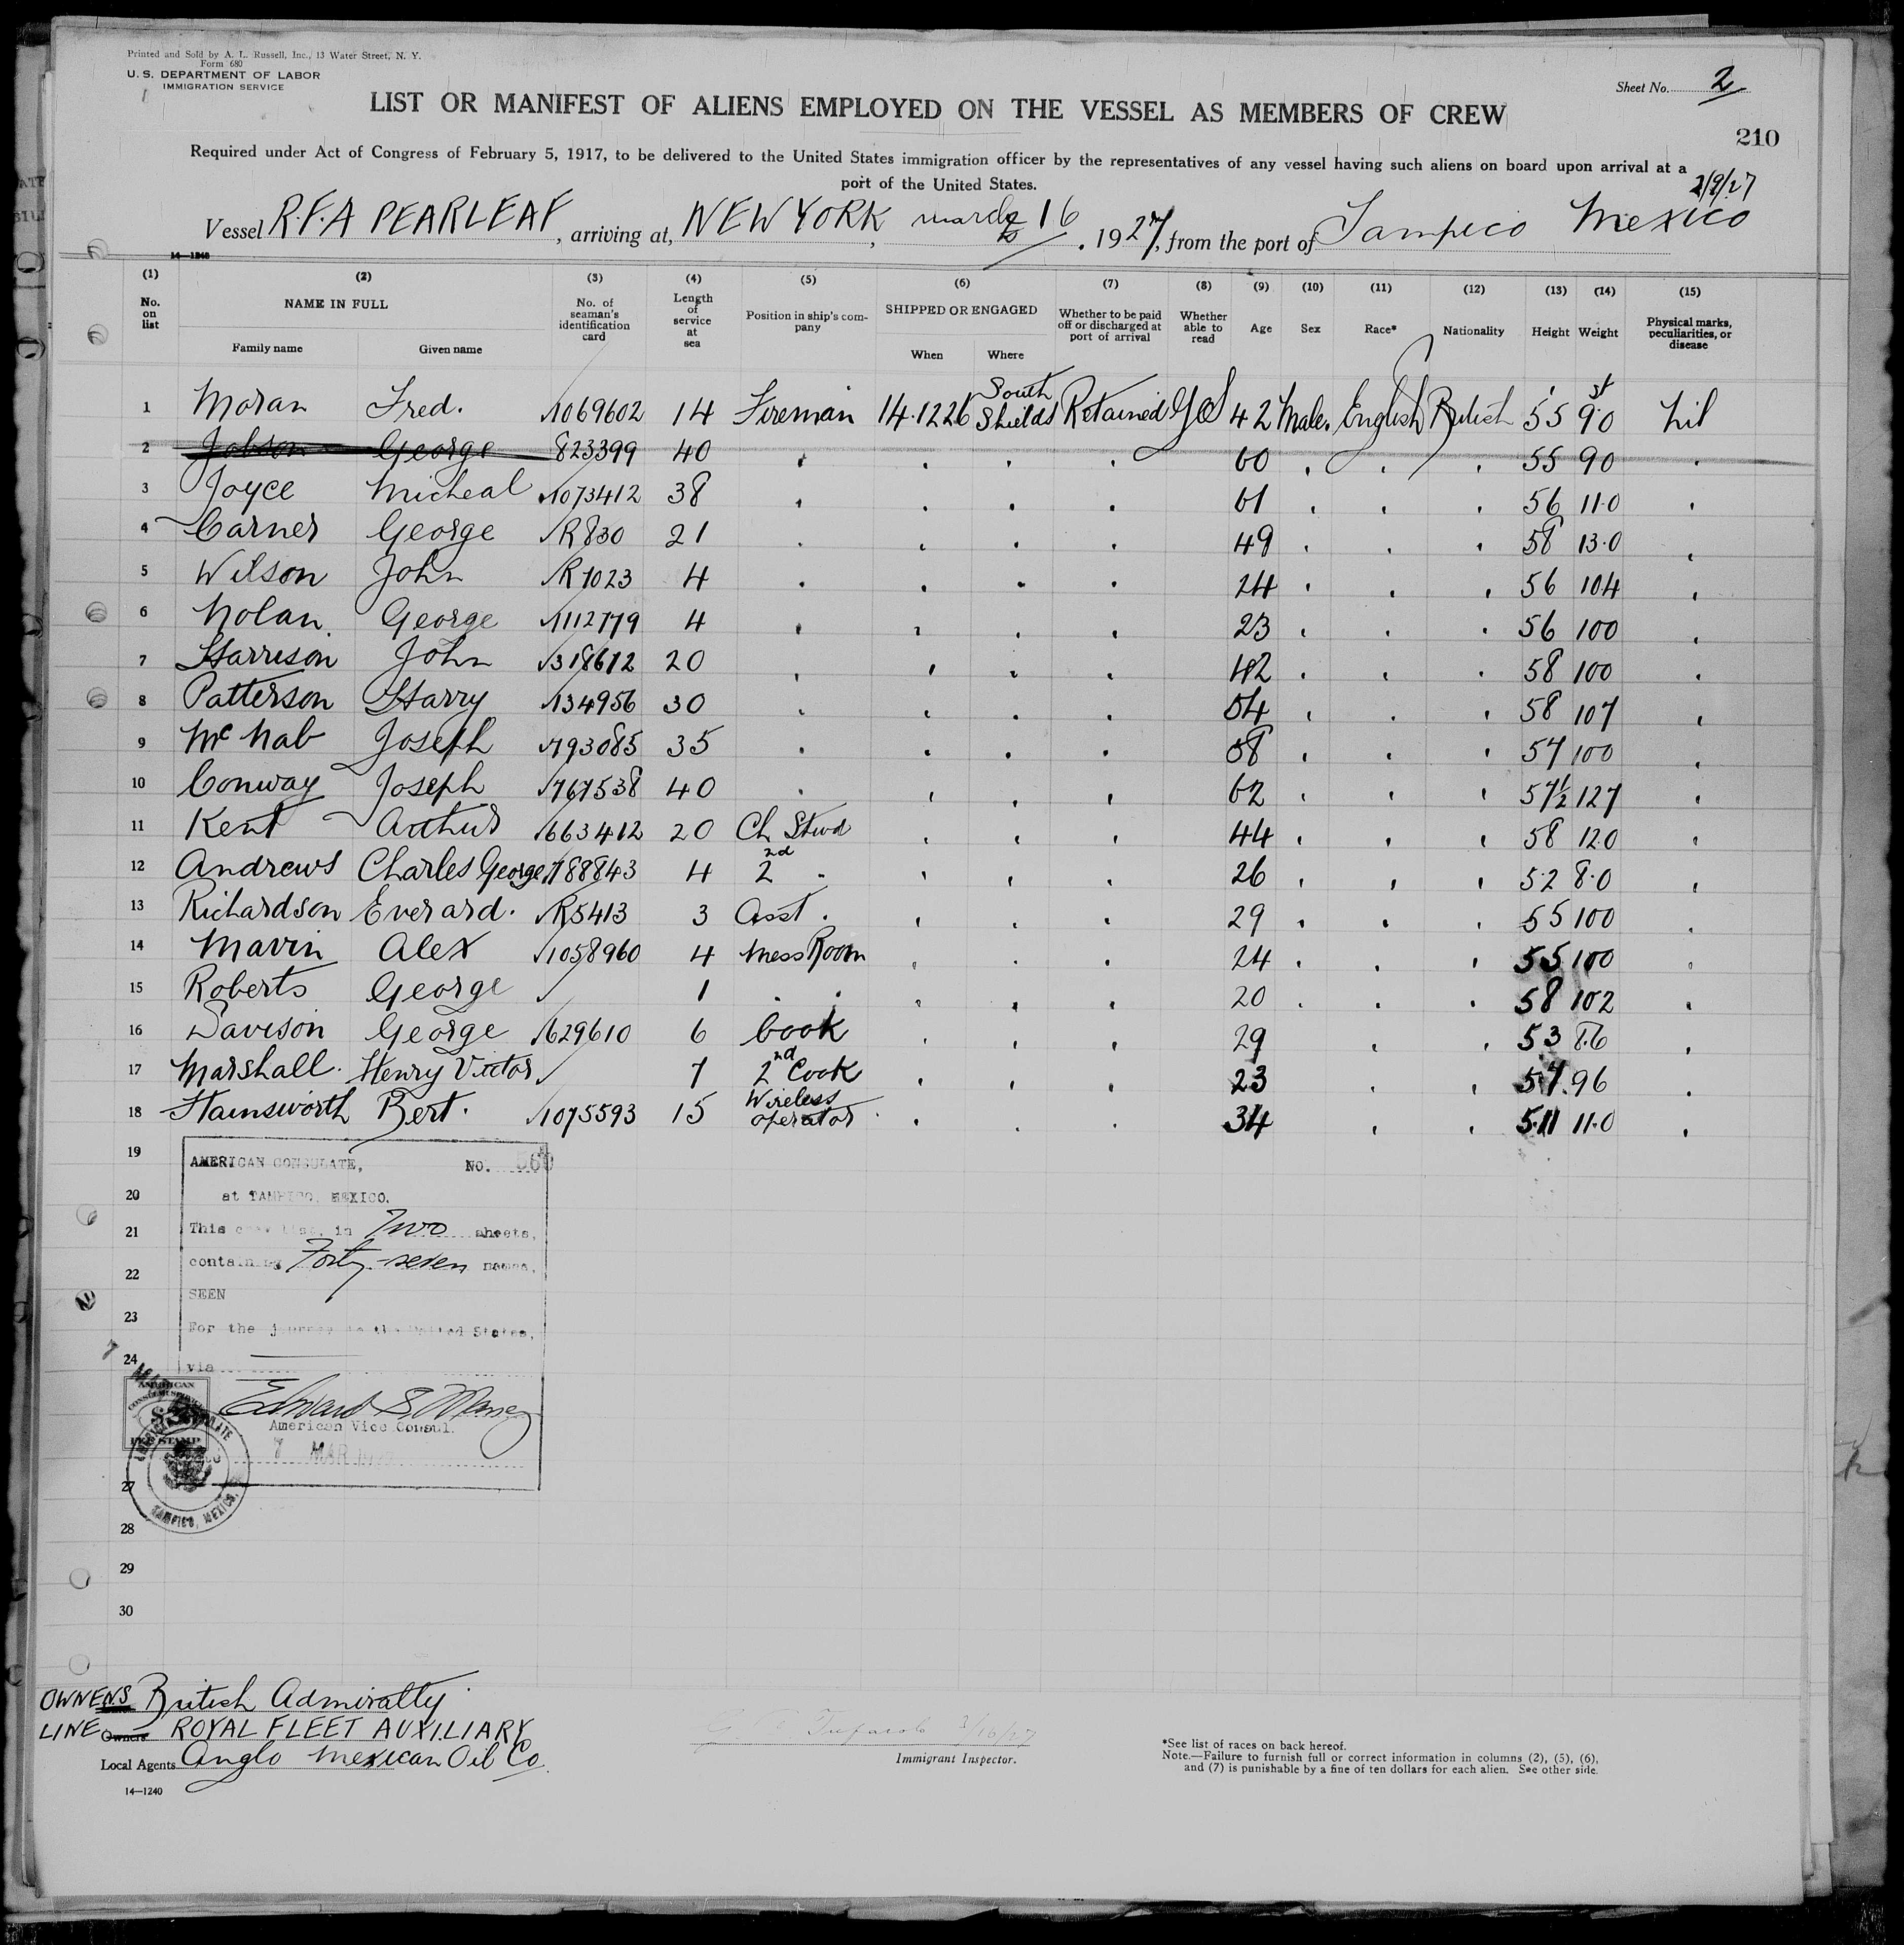 Printed and Sold by A. L. Russell, Inc., 13 Water Street, N. Y.
Form 680
U. S. DEPARTMENT OF LABOR
IMMIGRATION SERVICE
Sheet No. 2
LIST OR MANIFEST OF ALIENS EMPLOYED ON THE VESSEL AS MEMBERS OF CREW
210
Required under Act of Congress of February 5, 1917, to be delivered to the United States immigration officer by the representatives of any vessel having such aliens on board upon arrival at a
port of the United States.
Vessel R.F.A PEARLEAF, arriving at, NEW YORK, march 16, 1927, from the port of Tampico Mexico
14—1240
(1) (2) (3) (4) (5) (6) (7) (8) (9) (10) (11) (12) (13) (14) (15)
No. on list NAME IN FULL Family name Given name No. of seaman's identification card Length of service at sea Position in ship's company SHIPPED OR ENGAGED When Where Whether to be paid off or discharged at port of arrival Whether able to read Age Sex Race* Nationality Height Weight Physical marks, peculiarities, or disease
1 Moran Fred. 1069602 14 Fireman 14.12 26 South Shields Retained Yes 42 Male. English British 5 5 9.0 st Nil
2 Jobson George 823399 40 60 55 90
3 Joyce Micheal 1073412 38 61 56 11.0
4 Carner George R830 21 49 58 13.0
5 Wilson John R1023 4 24 56 104
6 Nolan George 1112779 4 23 56 100
7 Harrison John 318612 20 42 58 100
8 Patterson Harry 134956 30 54 58 107
9 McNab Joseph 793085 35 58 57 100
10 Conway Joseph 767538 40 62 57½ 127
11 Kent Arthur 663412 20 Ch Stwd 44 58 12.0
12 Andrews Charles George 788843 4 2nd 26 5.2 8.0
13 Richardson Everard. R5413 3 Asst. 29 55 100
14 Mavin Alex 1058960 4 Mess Room 24 55 100
15 Roberts George 1 20 58 102
16 Davison George 629610 6 Cook 29 53 8.6
17 Marshall. Henry Victor 7 2nd Cook 23 5.7. 96
18 Hainsworth Bert. 1075593 15 Wireless operator 34 5.11 11.0
19
20
21
22
23
24
27
28
29
30
AMERICAN CONSULATE, NO.
at TAMPICO, MEXICO.
This crew list, in Two sheets,
containing Forty-seven names.
SEEN
For the journey to the United States,
via
American Vice Consul.
7 MAR
AMERICAN
FEE STAMP
TAMPICO, MEXICO
OWNERS British Admiralty
LINE Owners ROYAL FLEET AUXILIARY
Local Agents Anglo Mexican Oil Co.
14—1240
3/16/27
Immigrant Inspector.
*See list of races on back hereof.
Note.—Failure to furnish full or correct information in columns (2), (5), (6),
and (7) is punishable by a fine of ten dollars for each alien. See other side.